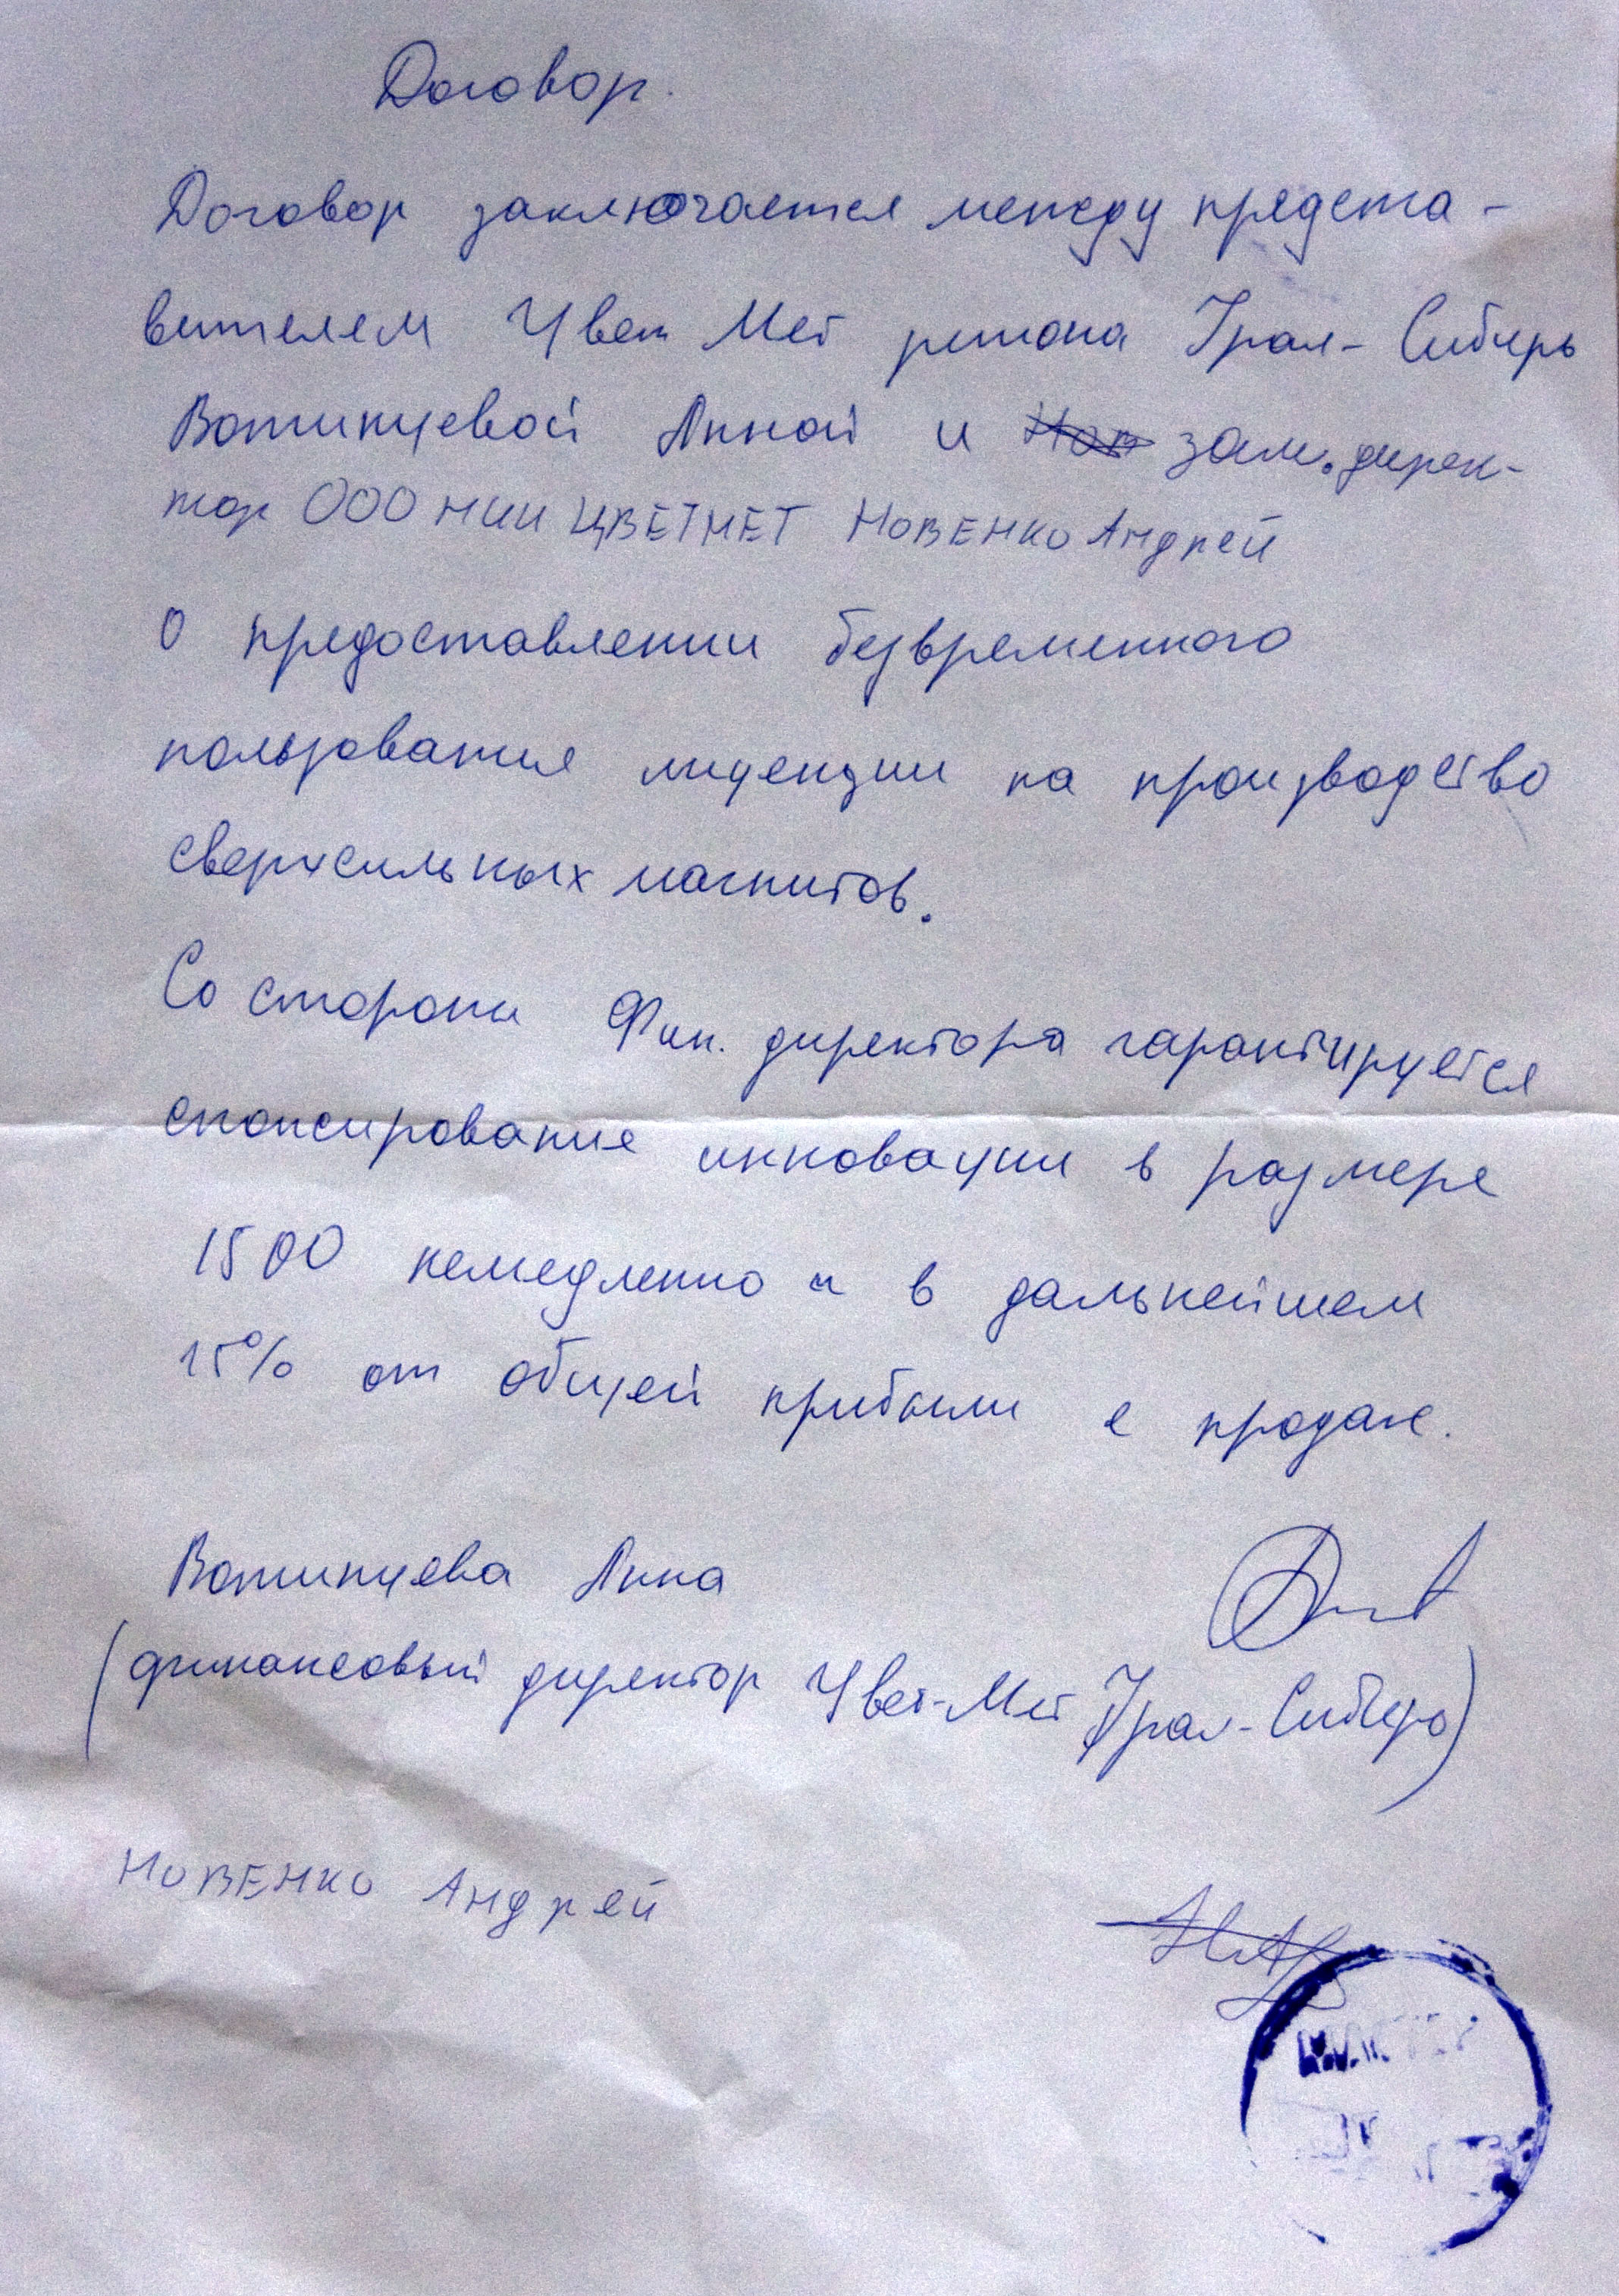 Договор.
Договор заключается между предста-
вителем Цвет Мет региона Урал-Сибирь
Вотинцевой Анной и зам. дирек-
тор ООО НИИ ЦВЕТМЕТ НОВЕНКО Андрей
О предоставлении безвременного
пользования лицензии на производство
сверхсильных магнитов.
Со стороны Фин. директора гарантируется
спонсирование инновации в размере
1500 немедленно и в дальнейшем
15% от общей прибыли с продаж.
Вотинцева Анна
(финансовый директор Цвет-Мет Урал-Сибирь)
НОВЕНКО Андрей